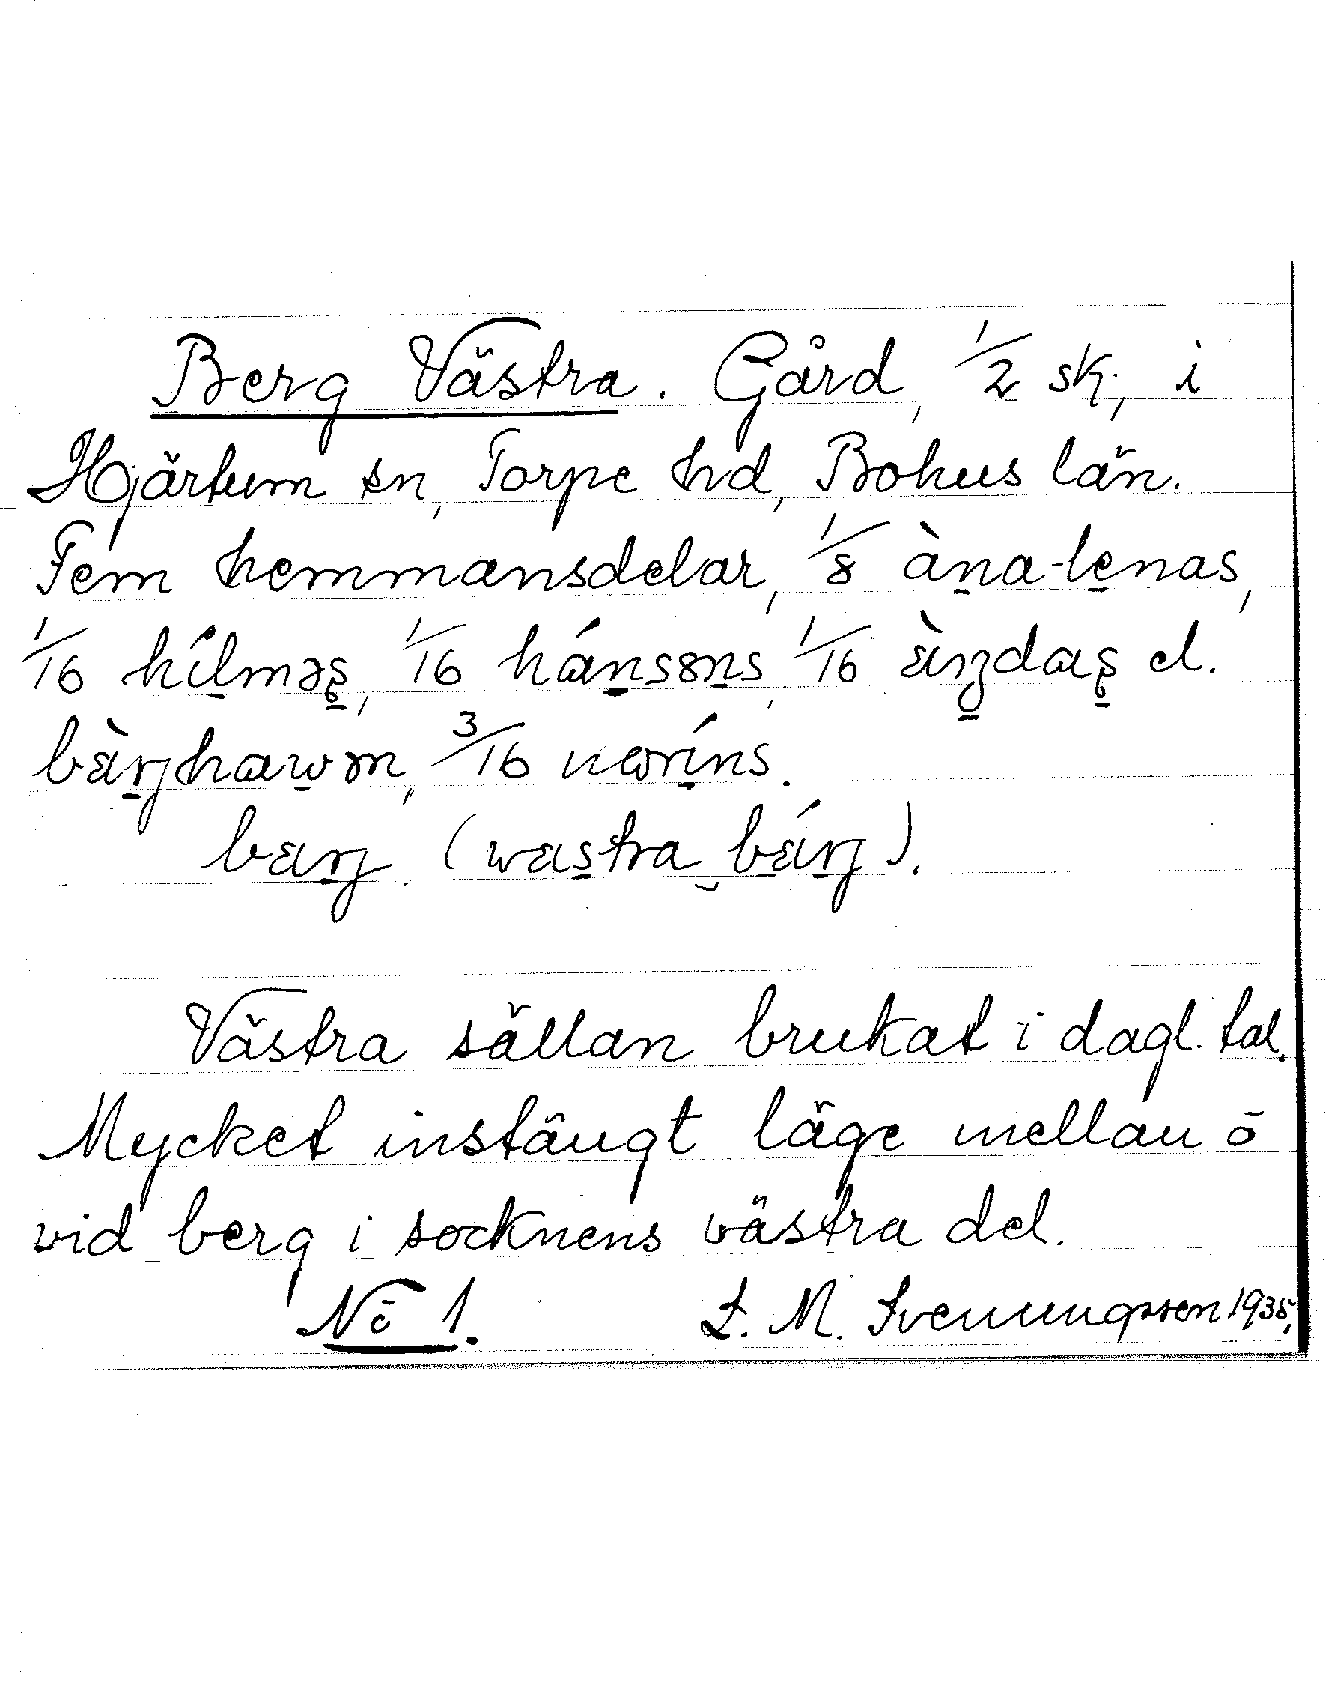 Berg Västra. Gård, 1/2 sk, i
Hjärtum sn, Torpe hd, Bohus län.
Fem hemmansdelar, 1/8 àna-lenas,
1/16 hílməs, 1/16 hánsɤns, 1/16 æ̀ŋdas el.
bæ̀rjhawɤm, 3/16
bærj. (wæstra bǽrj).
Västra sällan brukat i dagl. tal.
Mycket instängt läge mellan o
vid berg i socknens västra del.
No 1. L. M. Svenungsson 1935.